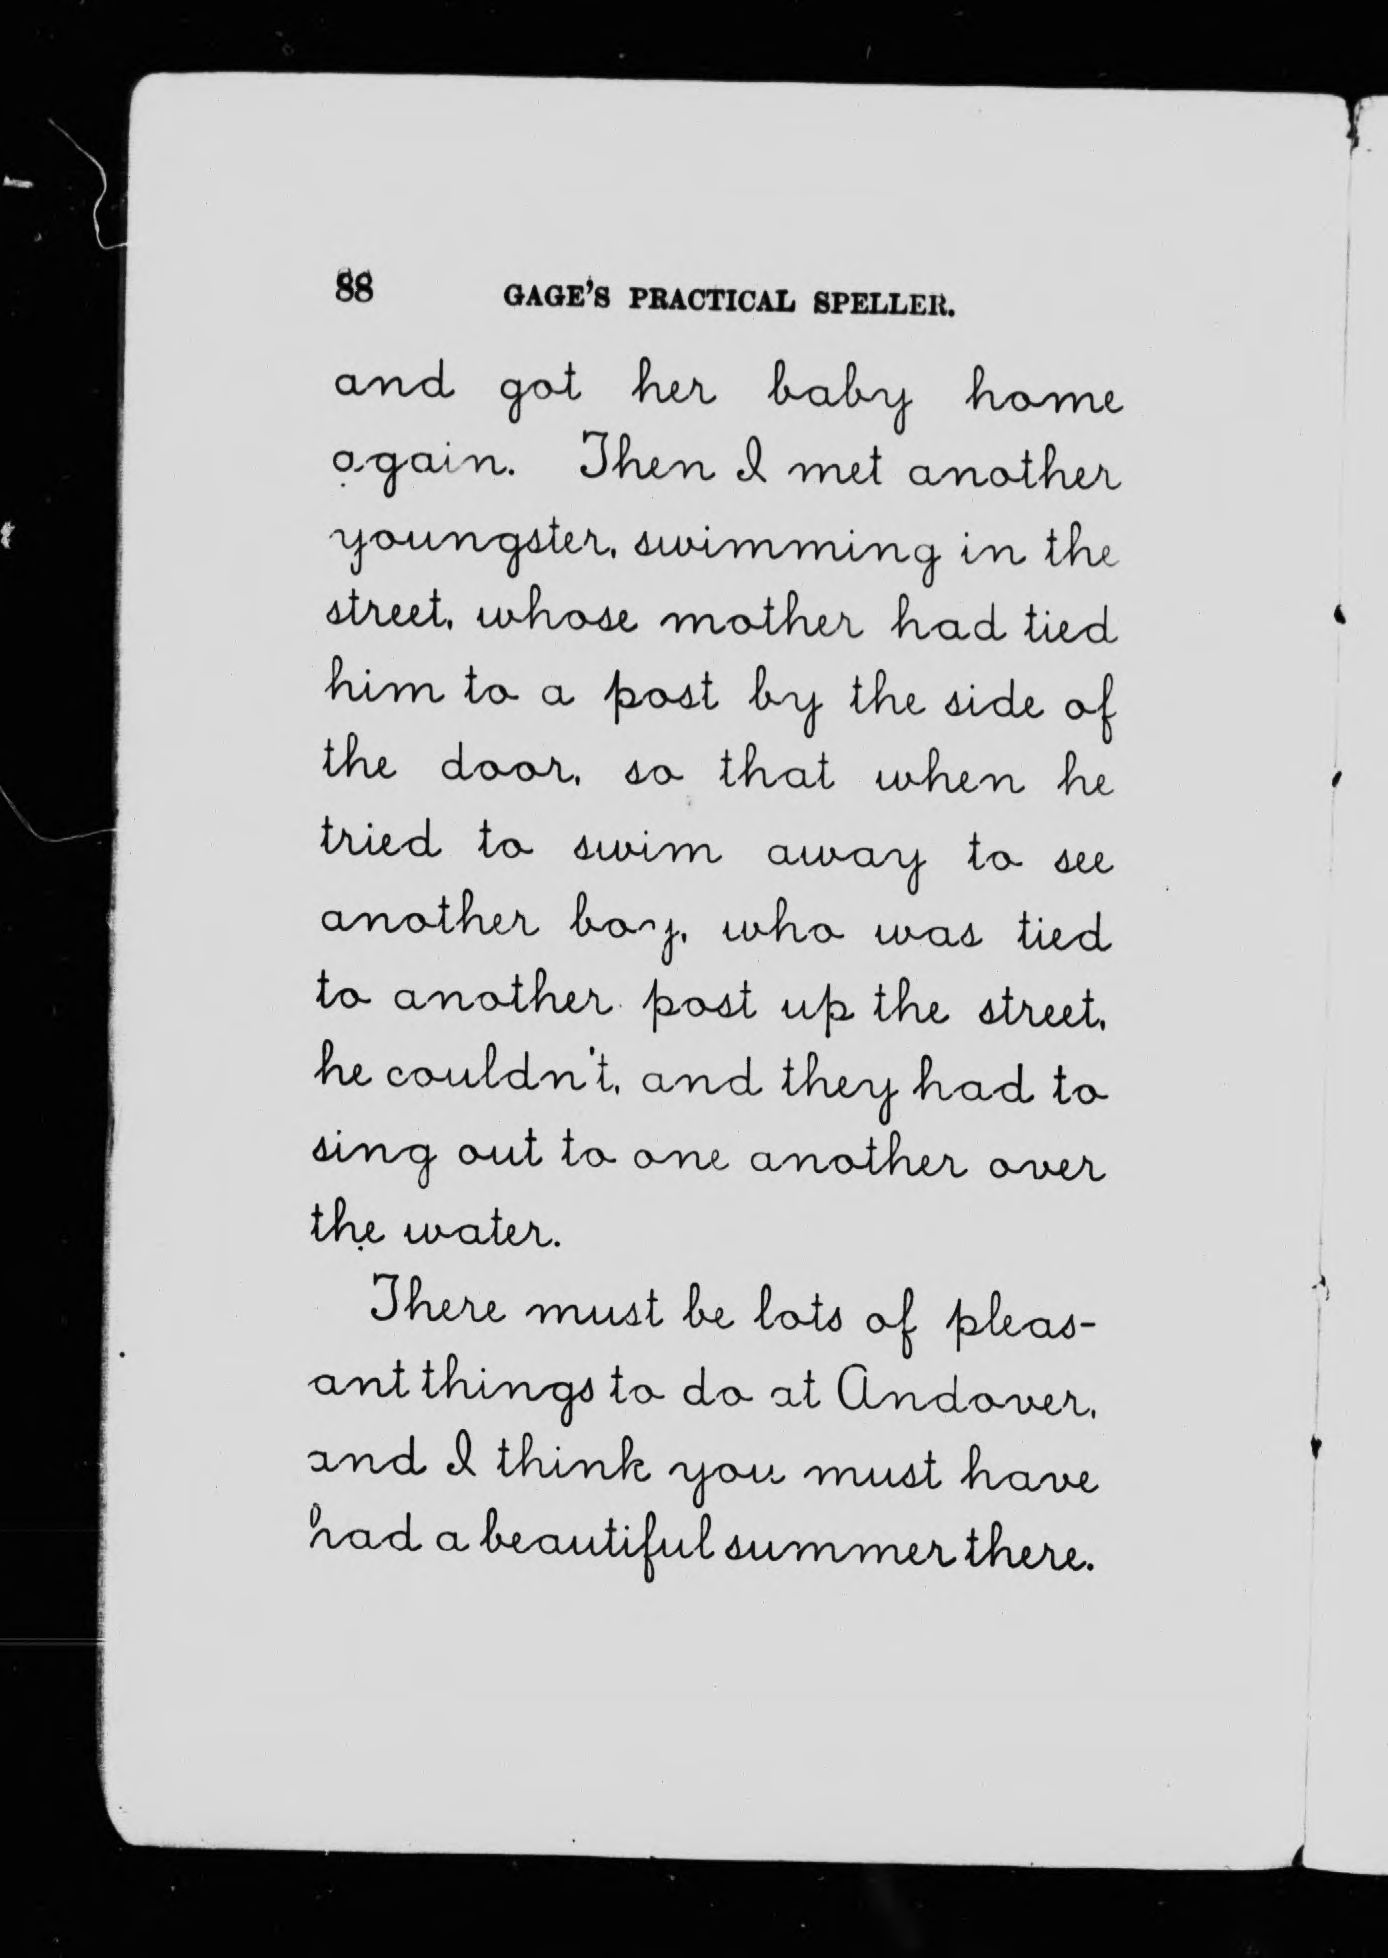 88 GAGE'S PRACTICAL SPELLER.
and got her baby home
again. Then I met another
youngster, swimming in the
street, whose mother had tied
him to a post by the side of
the door, so that when he
tried to swim away to see
another boy, who was tied
to another post up the street,
he couldn't, and they had to
sing out to one another over
the water.
There must be lots of pleas-
ant things to do at Andover,
and I think you must have
had a beautiful summer there.